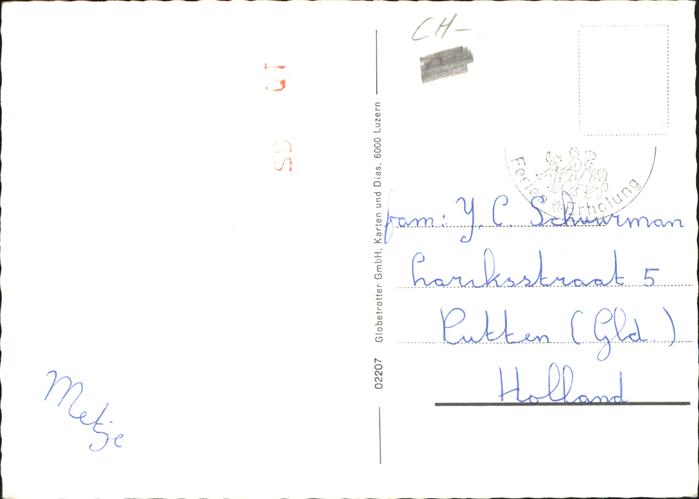 CH-
Ferien Erholung
fam: Y. C. Schuurman
Lariksstraat 5
Putten (Gld.)
Holland
02207 Globetrotter GmbH, Karten und Dias, 6000 Luzern
Metje